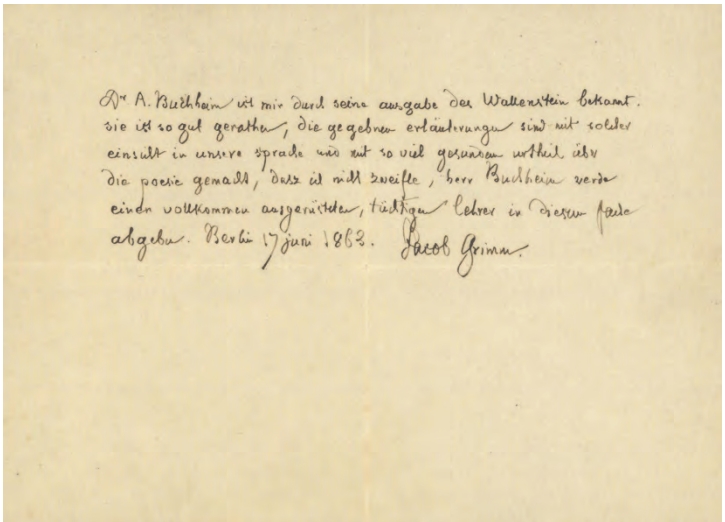 Dr A. Buchheim ist mir durch seine ausgabe des Wallenstein bekannt.
sie ist so gut gerathen, die gegebnen erläuterungen sind mit solcher
einsicht in unsere sprache und mit so viel gesundem urtheil über
die poesie gemacht, dasz ich nicht zweifle, herr Buchheim werde
einen vollkommen ausgerüsteten, tüchtigen lehrer in diesem fache
abgeben. Berlin 17 juni 1863. Jacob Grimm.